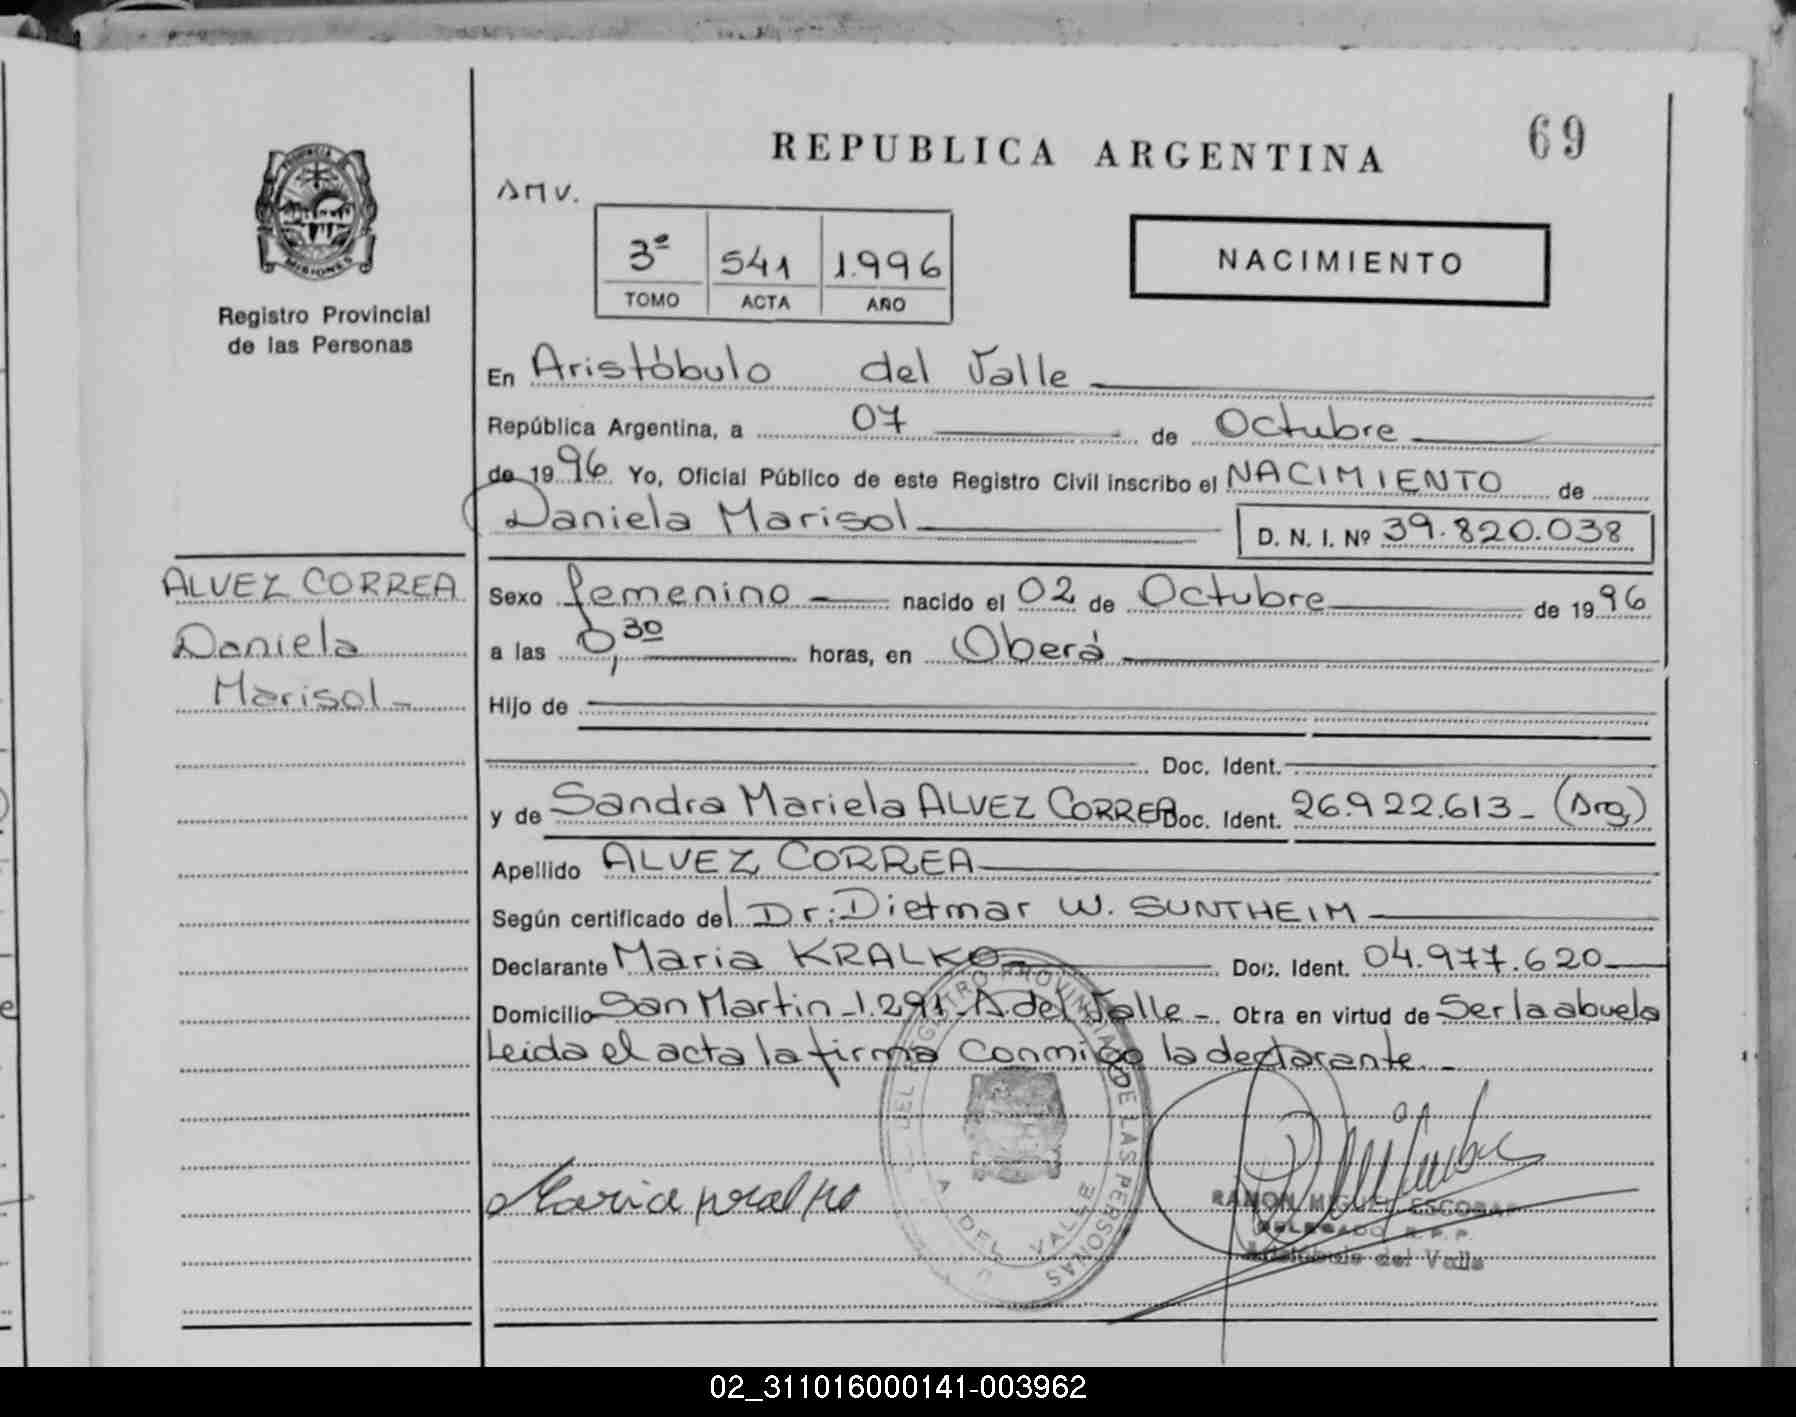 REPUBLICA ARGENTINA
69
PROVINCIA DE
MISIONES
Registro Provincial
de las Personas
AMV.
3º 541 1.996
TOMO ACTA AÑO
NACIMIENTO
En Aristóbulo del Valle
República Argentina, a 07 de Octubre
de 1996 Yo, Oficial Público de este Registro Civil inscribo el NACIMIENTO de
Daniela Marisol
D. N. I. Nº 39.820.038
ALVEZ CORREA
Daniela
Marisol-
Sexo femenino nacido el 02 de Octubre de 1996
a las 0,30 horas, en Oberá
Hijo de
Doc. Ident.
y de Sandra Mariela ALVEZ CORREA Doc. Ident. 26.922.613- (Arg)
Apellido ALVEZ CORREA
Según certificado del Dr: Dietmar W. SUNTHEIM
Declarante Maria KRALKO- Doc. Ident. 04.977.620
Domicilio San Martin-1.291-A.del Valle-. Obra en virtud de Ser la abuela
Leida el acta la firma conmigo la declarante.-
REGISTRO PROVINCIAL DE LAS PERSONAS
A DEL VALLE
Maria Kralko
RAMON MIGUEL ESCOBAR
DELEGADO R.P.P.
Aristóbulo del Valle
02_311016000141-003962